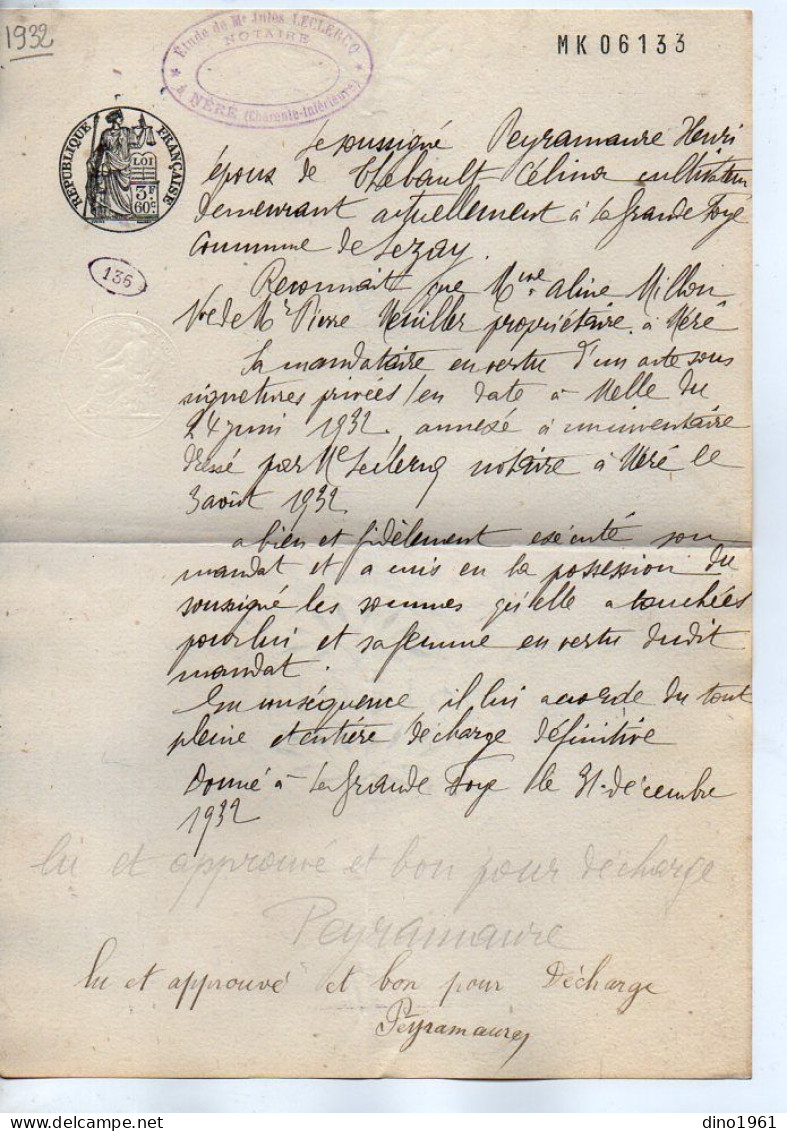 1932
Étude de Me Jules LECLERCQ
NOTAIRE
à NÉRÉ (Charente-Inférieure)
MK06133
RÉPUBLIQUE FRANÇAISE
LOI
3F
60c
136
Le soussigné Peyramaure Henri
époux de Thébault Célina cultivateur
demeurant actuellement à la Grande Foye
Commune de Lezay.
Reconnait que Mme Aline Millon
Vve de Mr Pierre Meuiller propriétaire à Néré
Sa mandataire en vertu d'un acte sous
signatures privées en date à Melle du
24 juin 1932, annexé à un inventaire
dressé par Me Leclercq notaire à Néré le
3 août 1932
a bien et fidèlement exécuté son
mandat et a mis en la possession du
soussigné les sommes qu'elle a touchées
pour lui et sa femme en vertu dudit
mandat.
En conséquence il lui accorde du tout
pleine et entière décharge définitive
Donné à la Grande Foye le 31 décembre
1932
lu et approuvé et bon pour décharge
Peyramaure
lu et approuvé et bon pour Décharge
Peyramaure
dino1961